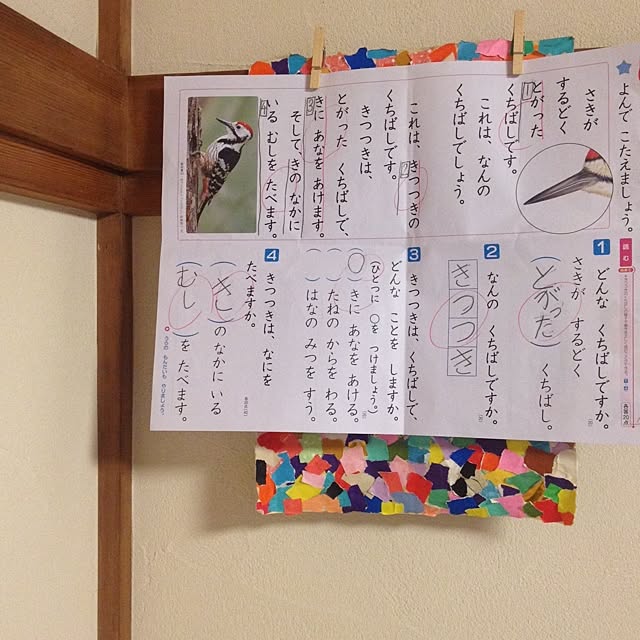 よんで こたえましょう。
さきが
するどく
とがった
くちばしです。
これは、なんの
くちばしでしょう。
これは、きつつきの
くちばしです。
きつつきは、
とがった くちばしで、
きに あなを あけます。
そして、きの なかに
いる むしを たべます。
1
2
3
4
読む
1 どんな くちばしですか。
さきが するどく
とがった くちばし。
2 なんの くちばしですか。
きつつき
3 きつつきは、くちばしで、
どんな ことを しますか。
(ひとつに ○を つけましょう。)
(○) きに あなを あける。
( ) たねの からを わる。
( ) はなの みつを すう。
4 きつつきは、なにを
たべますか。
(き)の なかに いる
(むし)を たべます。
うらの もんだいも やりましょう。